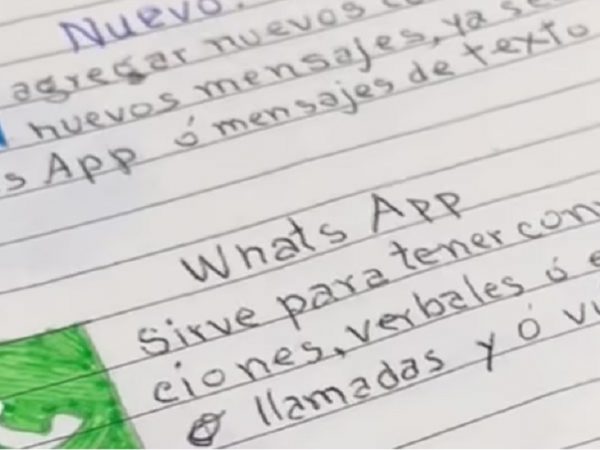 Nuevo.
agregar nuevos
nuevos mensajes, ya se
s App ó mensajes de texto
Whats App
Sirve para tener con
ciones, verbales ó e
llamadas y ó v